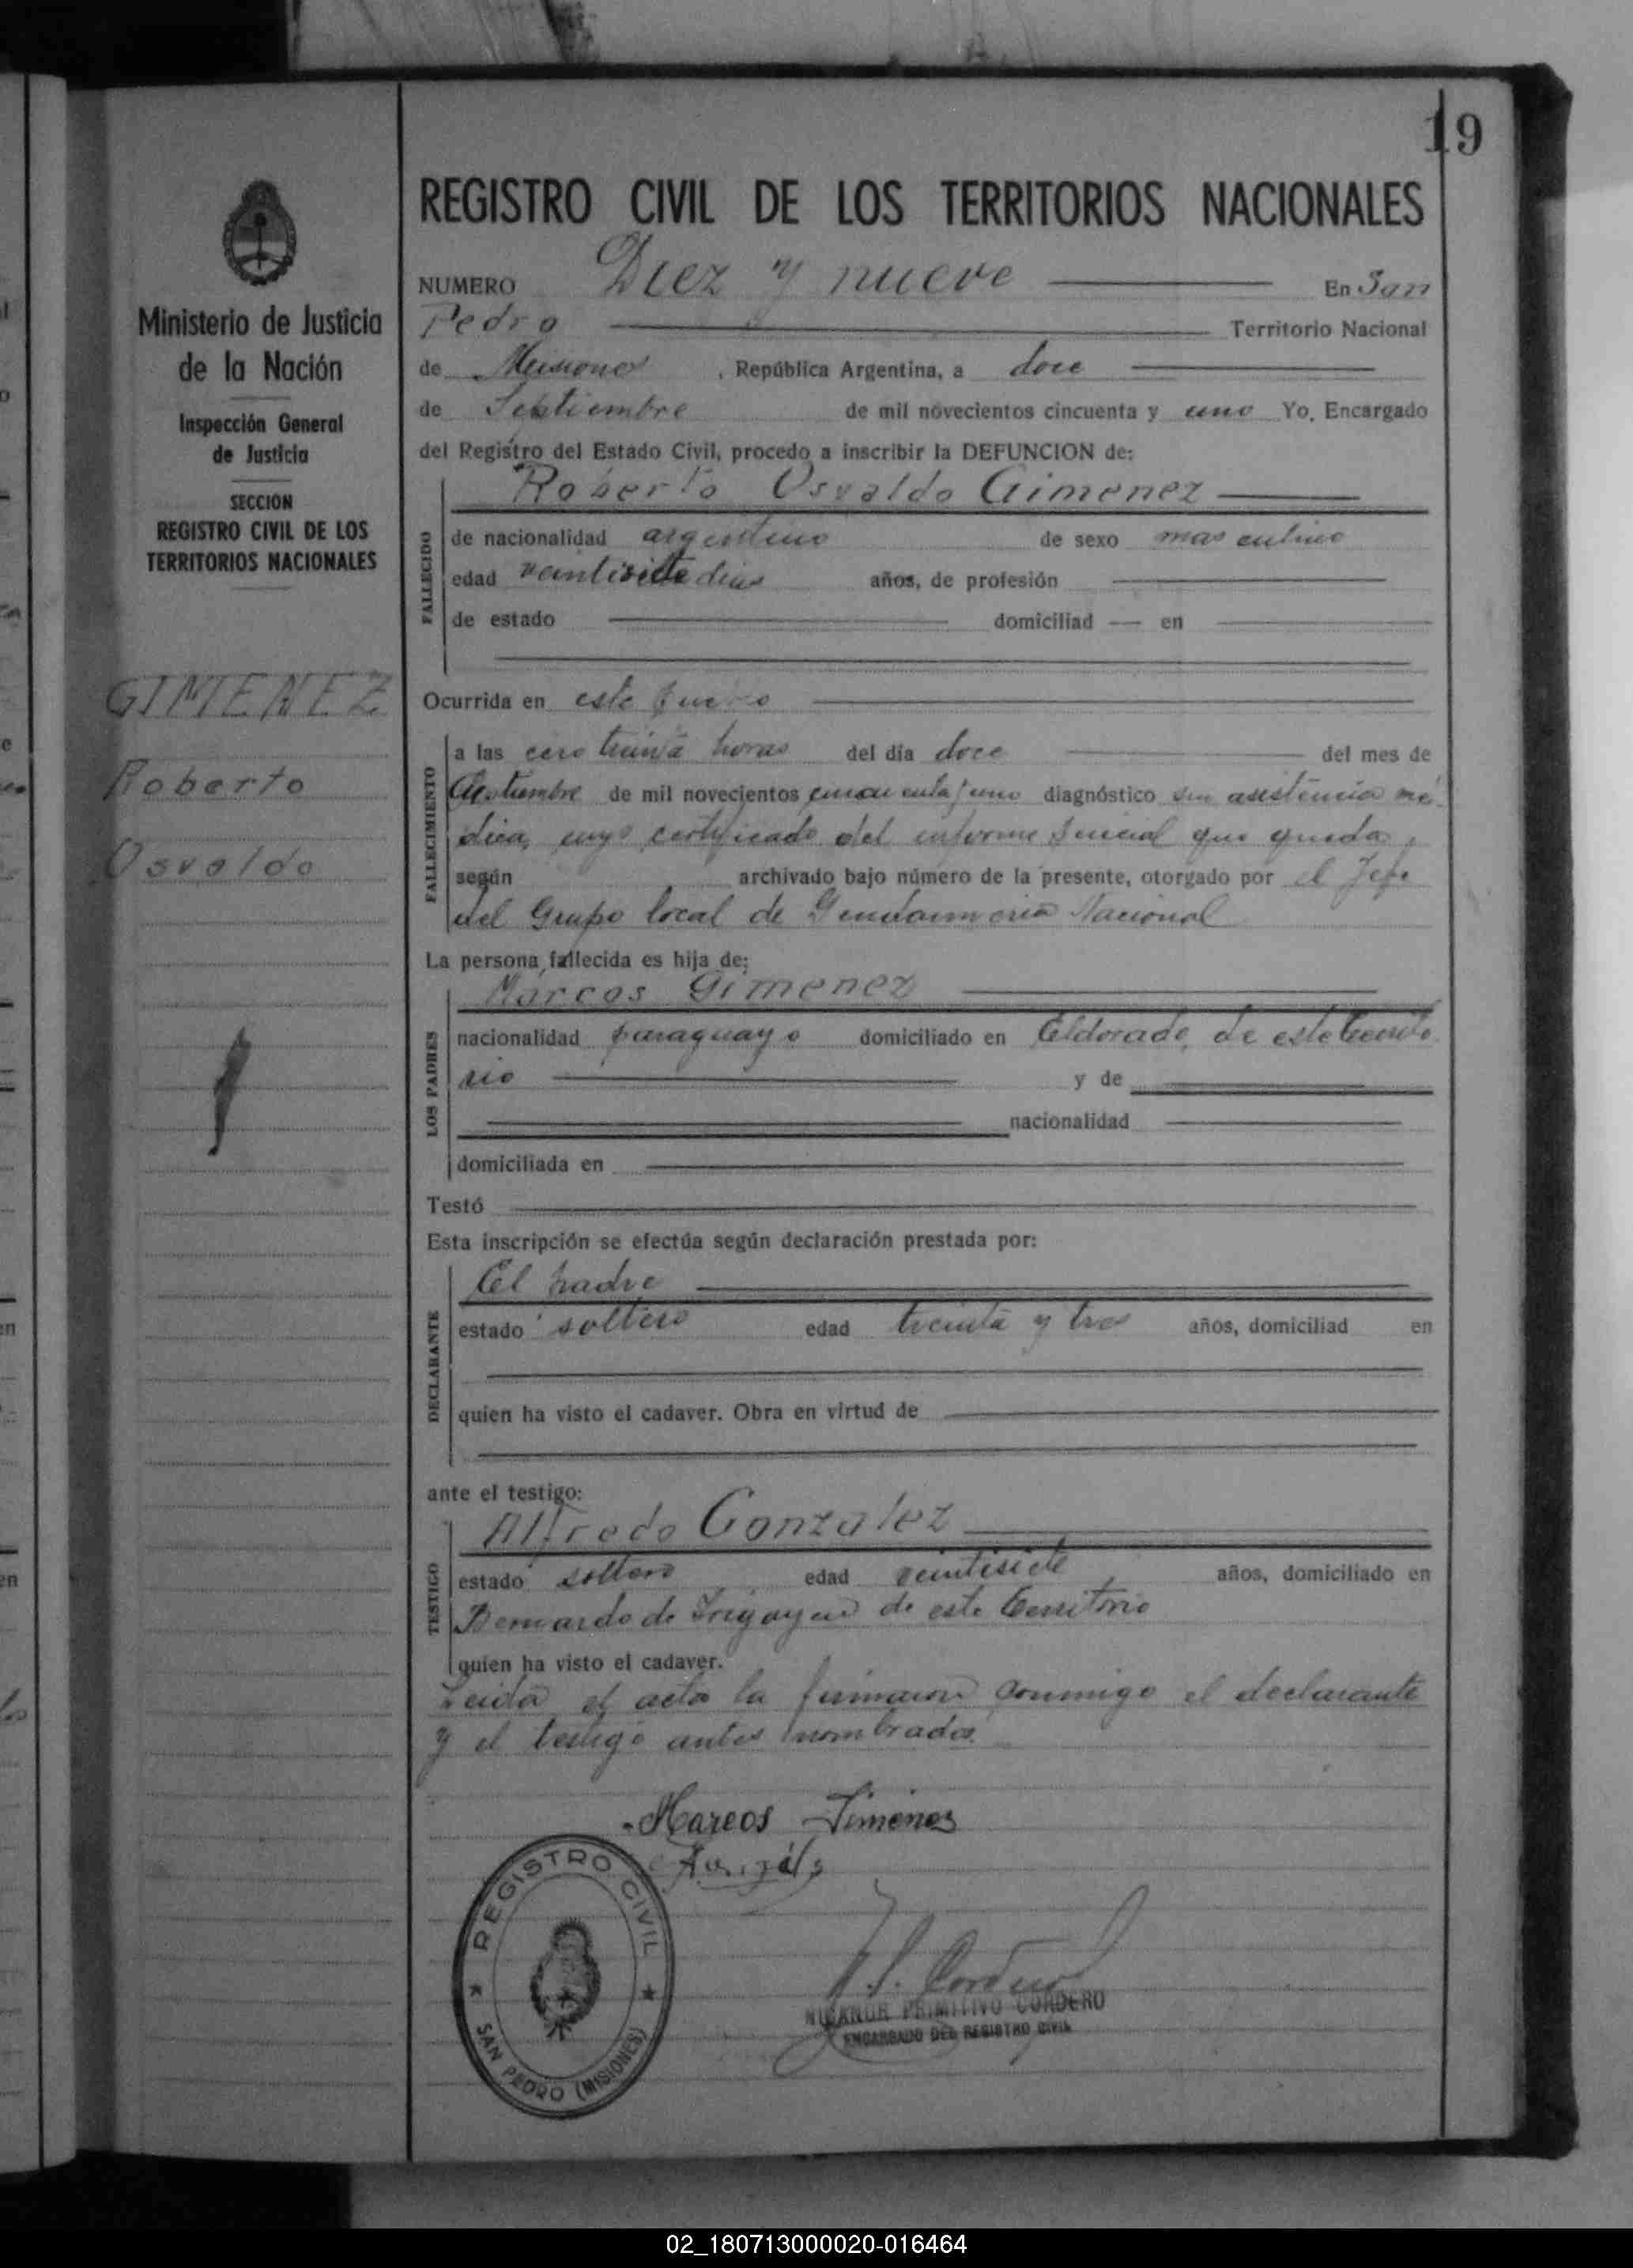 19
REGISTRO CIVIL DE LOS TERRITORIOS NACIONALES
NUMERO Diez y nueve En San
Pedro Territorio Nacional
de Misiones, República Argentina, a doce
de Septiembre de mil novecientos cincuenta y uno Yo, Encargado
del Registro del Estado Civil, procedo a inscribir la DEFUNCION de:
Roberto Osvaldo Gimenez
FALLECIDO
de nacionalidad argentino de sexo masculino
edad veintisiete dias años, de profesión
de estado domiciliad en
Ocurrida en este
FALLECIMIENTO
a las cero treinta horas del día doce del mes de
Septiembre de mil novecientos cincuenta y uno diagnóstico sin asistencia mé-
dica, cuyo certificado del informe que queda
según archivado bajo número de la presente, otorgado por el Jefe
del Grupo local de Gendarmeria Nacional
La persona fallecida es hija de:
LOS PADRES
Marcos Gimenez
nacionalidad paraguayo domiciliado en Eldorado, de este territo
rio y de
nacionalidad
domiciliada en
Testó
Esta inscripción se efectúa según declaración prestada por:
DECLARANTE
El padre
estado soltero edad treinta y tres años, domiciliad en
quien ha visto el cadaver. Obra en virtud de
ante el testigo:
TESTIGO
Alfredo Gonzalez
estado soltero edad veintisiete años, domiciliado en
Bernardo de Irigoyen de este territorio
quien ha visto el cadaver.
Leida el acta la firmaron conmigo el declarante
y el testigo antes nombrados.
Marcos Jimenes
NICANOR PRIMITIVO CORDERO
ENCARGADO DEL REGISTRO CIVIL
REGISTRO CIVIL
SAN PEDRO (MISIONES)
Ministerio de Justicia
de la Nación
Inspección General
de Justicia
SECCION
REGISTRO CIVIL DE LOS
TERRITORIOS NACIONALES
GIMENEZ
Roberto
Osvaldo
02_180713000020-016464